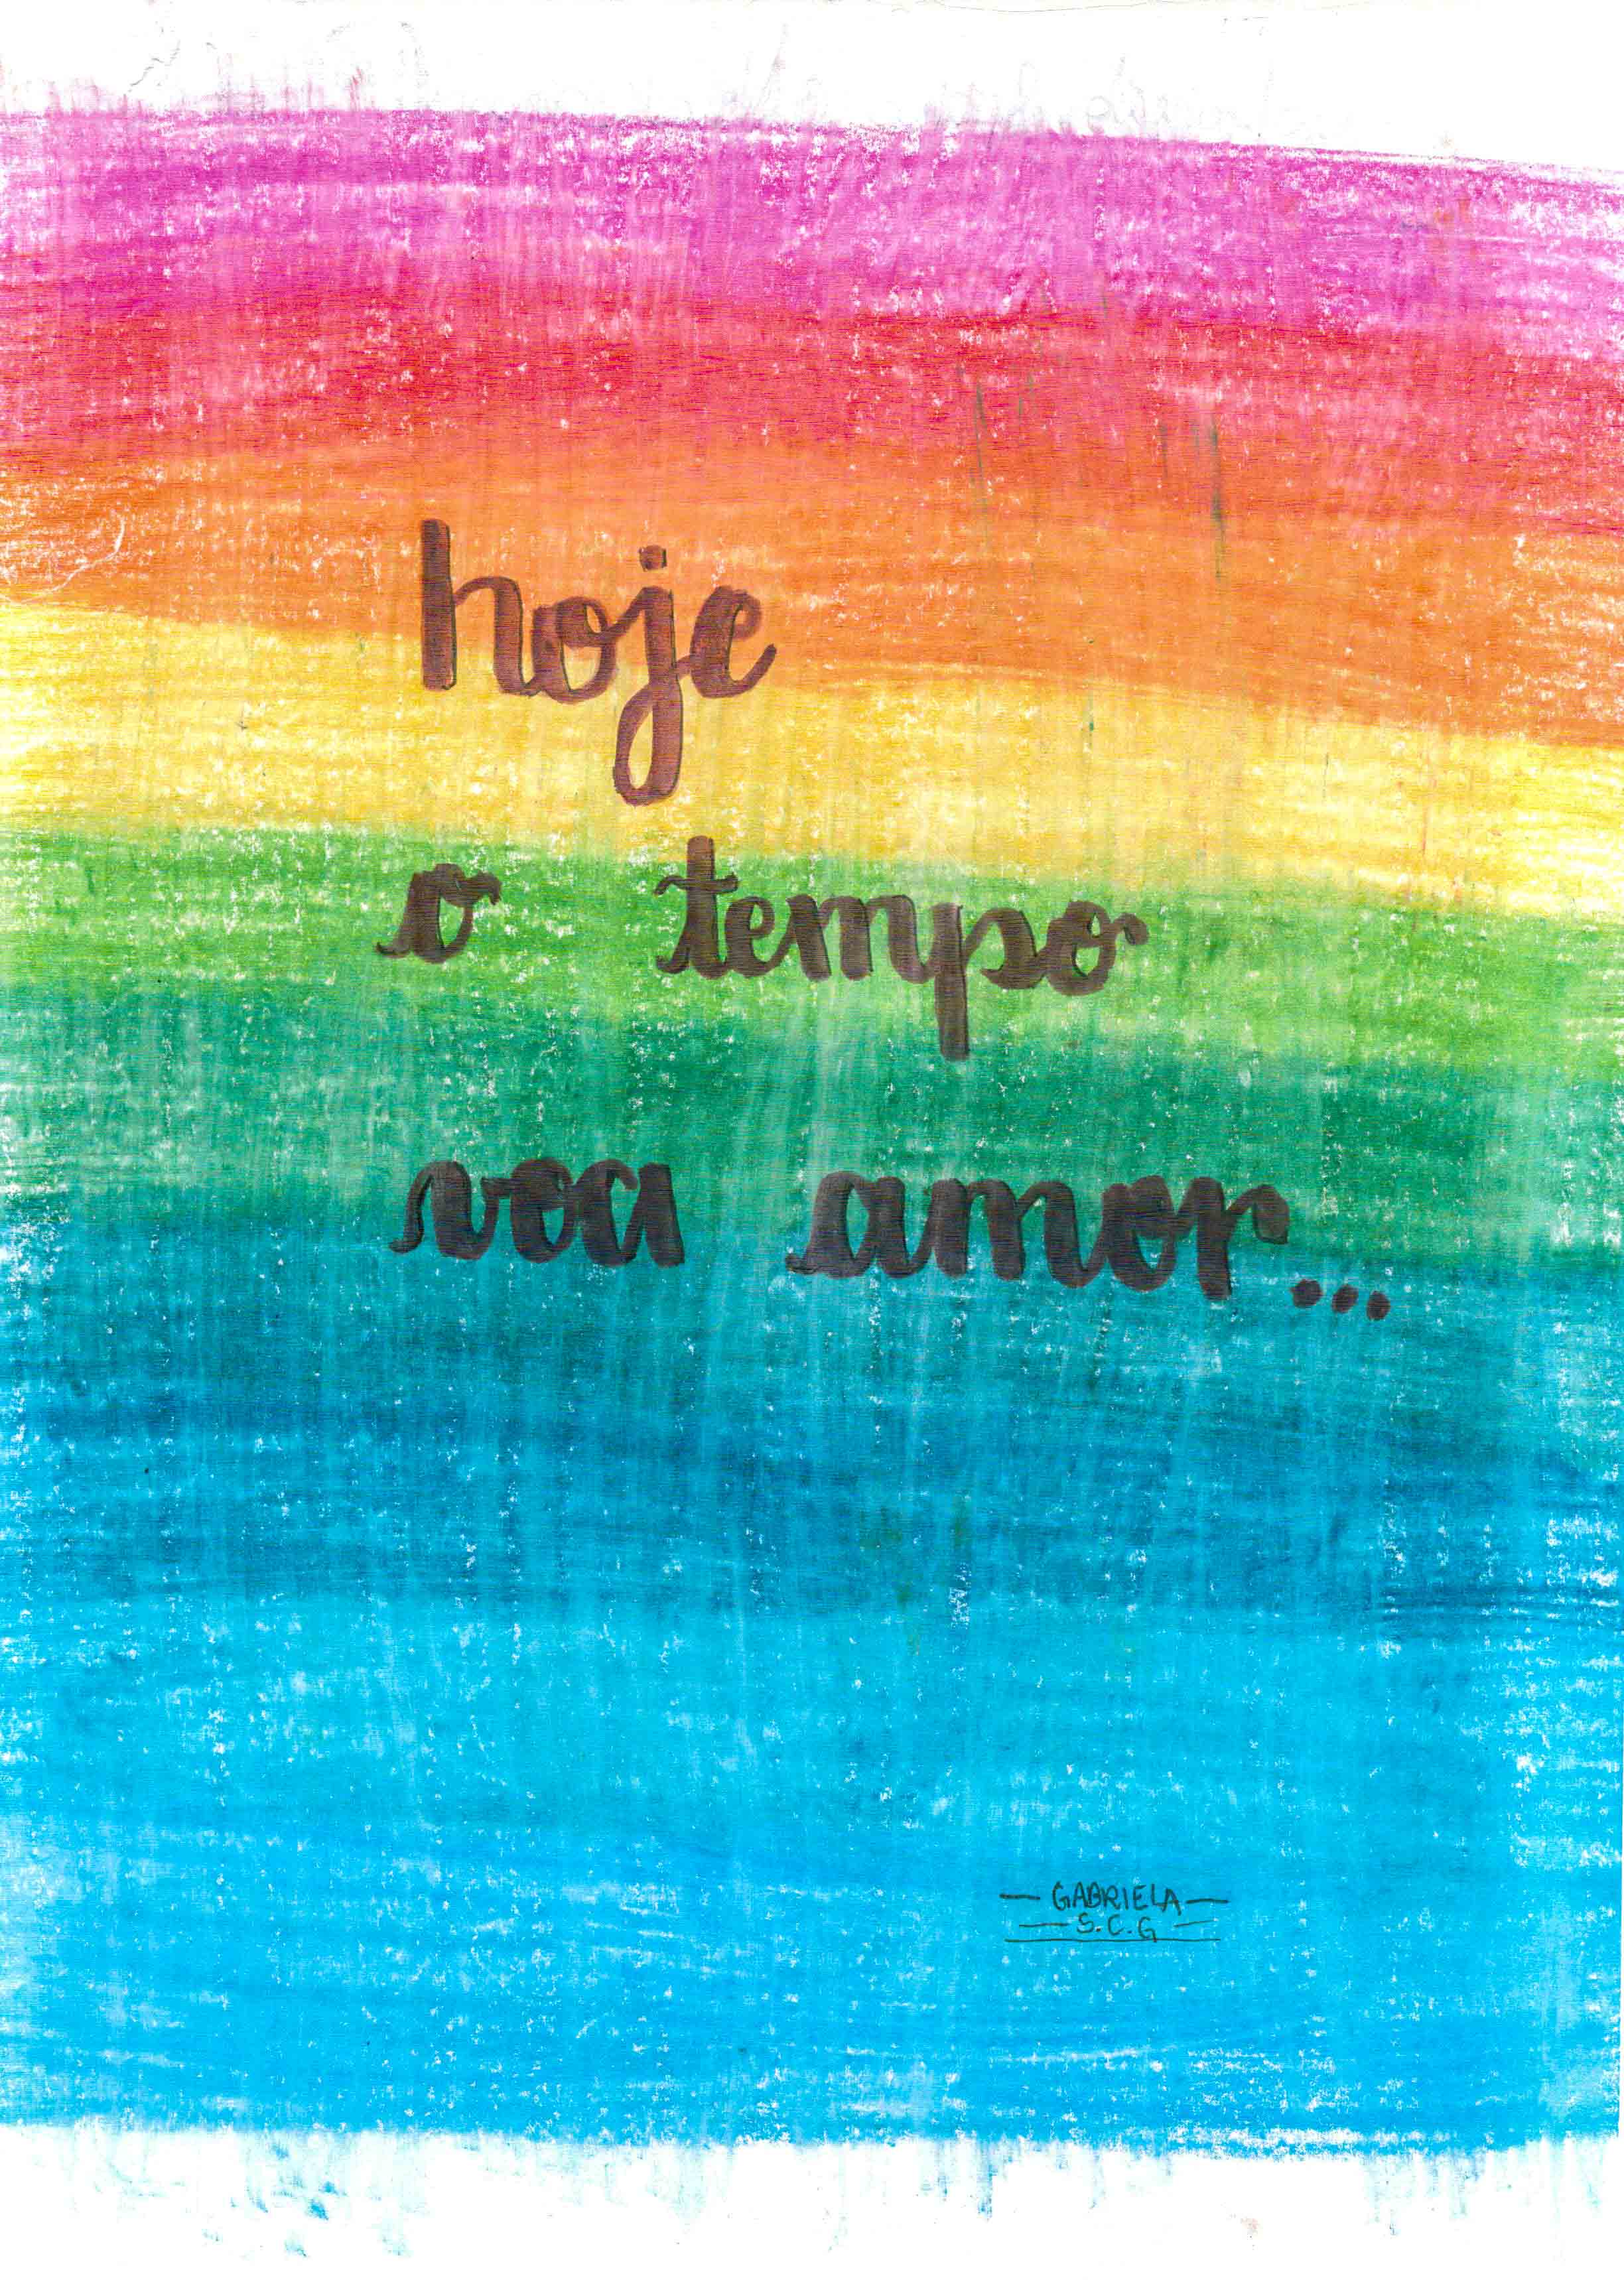 hoje
o tempo
voa amor...
— GABRIELA —
— S.C.G —